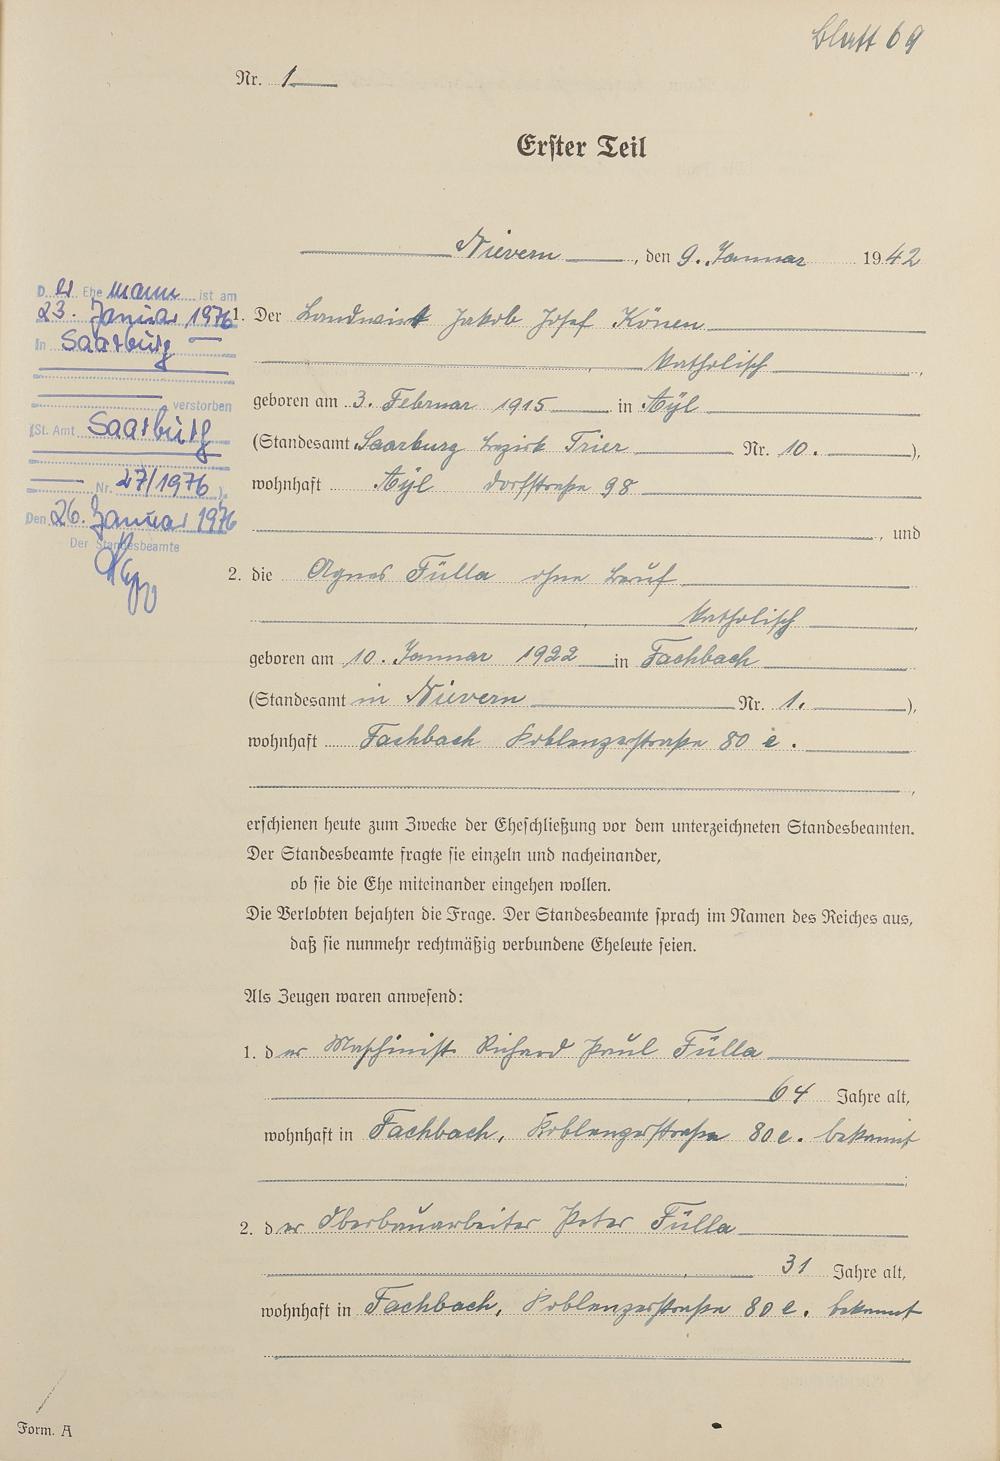 Blatt 69
Nr. 1
Erster Teil
Nievern, den 9. Januar 1942
D er Ehe mann ist am
23. Januar 1976
in Saarburg
verstorben
(St. Amt Saarburg
Nr. 27/1976).
Den 26. Januar 1976
Der Standesbeamte
1. Der Landwirt Jakob Josef Könen
, katholisch,
geboren am 3. Februar 1915 in Ayl
(Standesamt Saarburg bezirk Trier Nr. 10.),
wohnhaft Ayl dorfstraße 98
, und
2. die Agnes Fülla ohne beruf
, katholisch,
geboren am 10. Januar 1922 in Fachbach
(Standesamt in Nievern Nr. 1.),
wohnhaft Fachbach Koblenzerstraße 80 e.
,
erschienen heute zum Zwecke der Eheschließung vor dem unterzeichneten Standesbeamten.
Der Standesbeamte fragte sie einzeln und nacheinander,
ob sie die Ehe miteinander eingehen wollen.
Die Verlobten bejahten die Frage. Der Standesbeamte sprach im Namen des Reiches aus,
daß sie nunmehr rechtmäßig verbundene Eheleute seien.
Als Zeugen waren anwesend:
1. der Maschinist Richard Paul Fülla
, 64 Jahre alt,
wohnhaft in Fachbach, Koblenzerstraße 80 e. bekannt
;
2. der Oberbauarbeiter Peter Fülla
, 31 Jahre alt,
wohnhaft in Fachbach, Koblenzerstraße 80 e. bekannt
Form. A